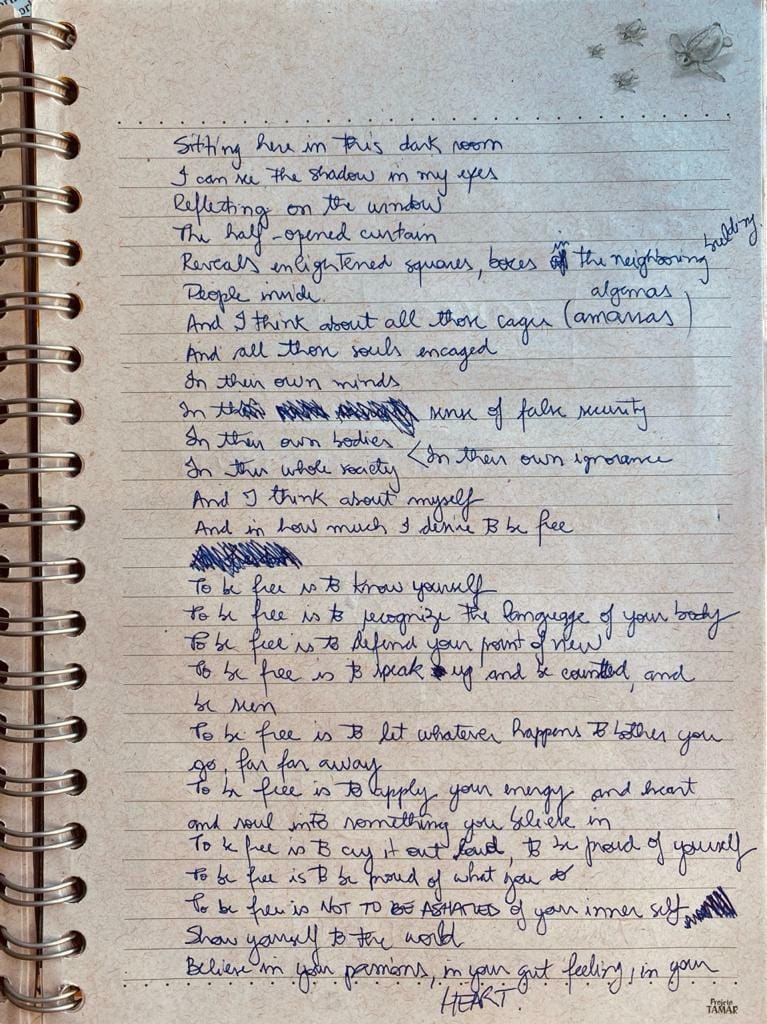 Sitting here in this dark room
I can see the shadow in my eyes
Reflecting on the window
The half-opened curtain
Reveals enlightened squares, boxes in the neighboring building.
People inside.
algemas
And I think about all those cages (amarras)
And all those souls encaged
In their own minds
In sense of false security
In their own bodies
< In their own ignorance
In this whole society
And I think about myself
And in how much I desire to be free
To be free is to know yourself
To be free is to recognize the language of your body
To be free is to defend your point of view
To be free is to speak up and be counted, and
be seen
To be free is to let whatever happens to bother you
go, far far away
To be free is to apply your energy and heart
and soul into something you believe in
To be free is to cry it out loud, to be proud of yourself
To be free is to be proud of what you do
To be free is NOT TO BE ASHAMED of your inner self
Show yourself to the world
Believe in your passions, in your gut feeling, in your
HEART.
Projeto
TAMAR